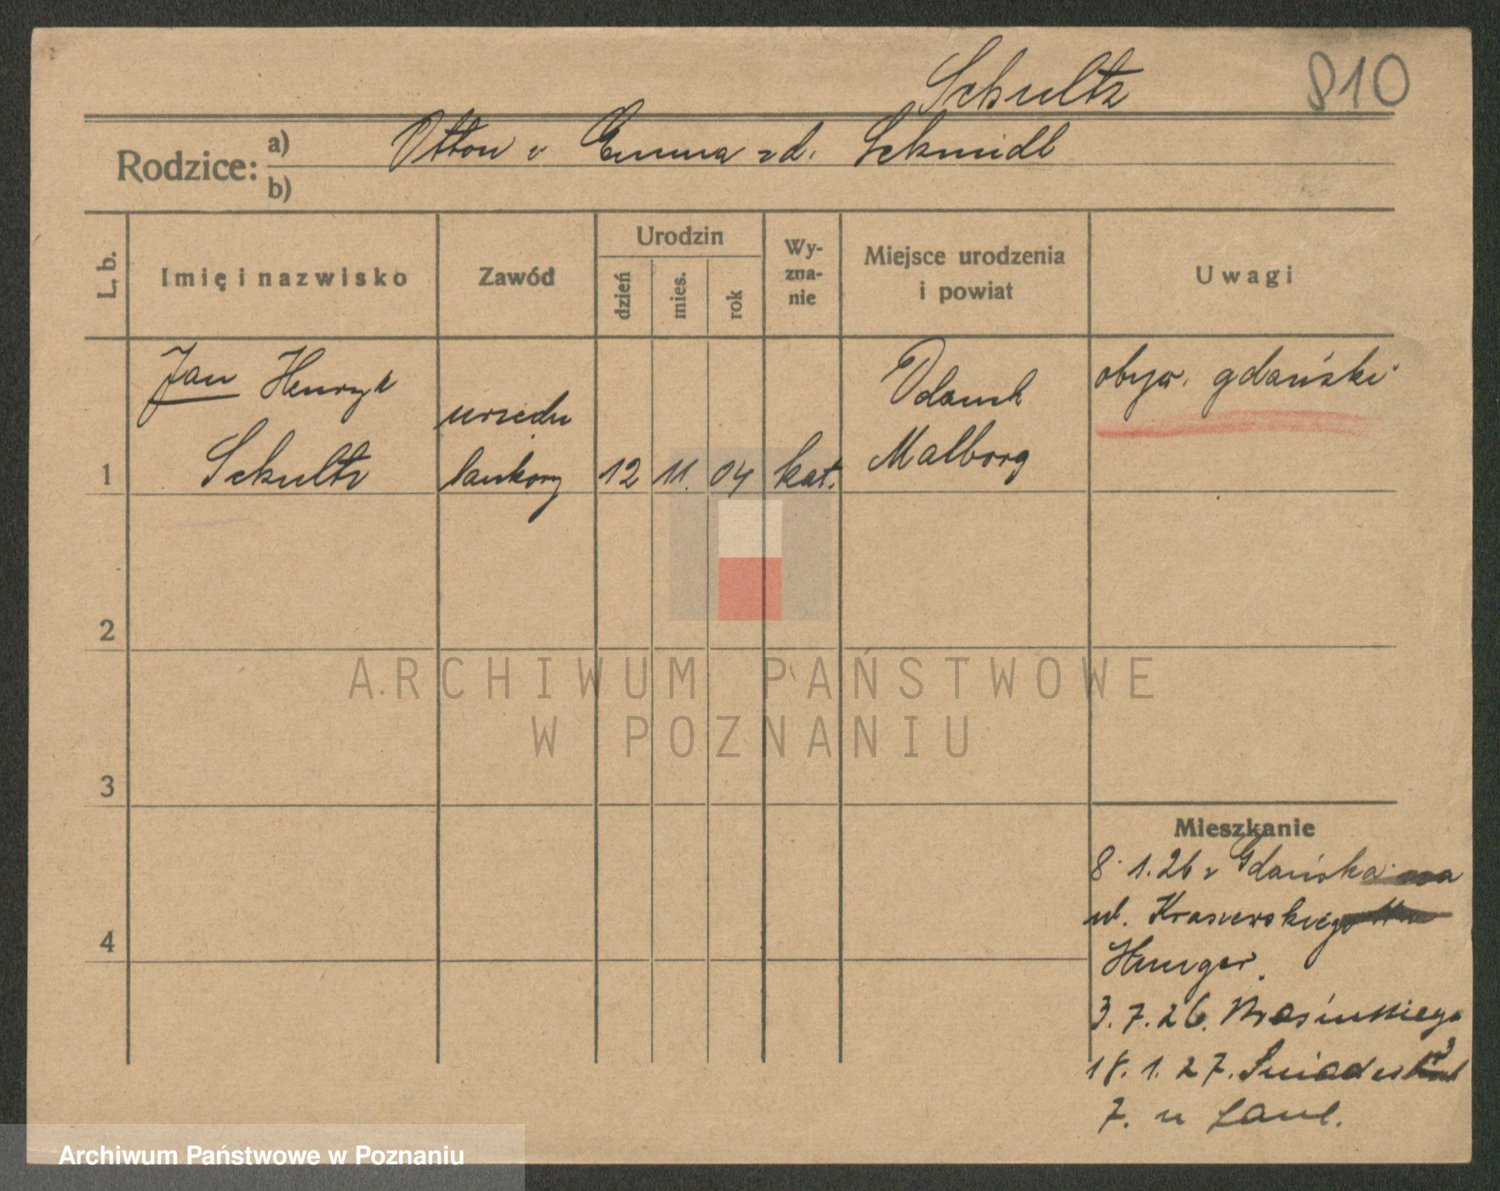 Schultz
810
Rodzice:
a) Otton i Emma zd. Schmidt
b)
L. b.
Imię i nazwisko
Zawód
Urodzin
dzień
mies.
rok
Wy-
zna-
nie
Miejsce urodzenia
i powiat
Uwagi
Jan Henryk
Schultz
urzędn
bankowy
1
12
11.
04
kat.
Malborg
obyw. gdański
2
3
4
Mieszkanie
8.1.26 z Gdańska
ul. Kraszewskiego
3.7.26.
18.1.27. Śniadeckich
7. u
ARCHIWUM PAŃSTWOWE
W POZNANIU
Archiwum Państwowe w Poznaniu